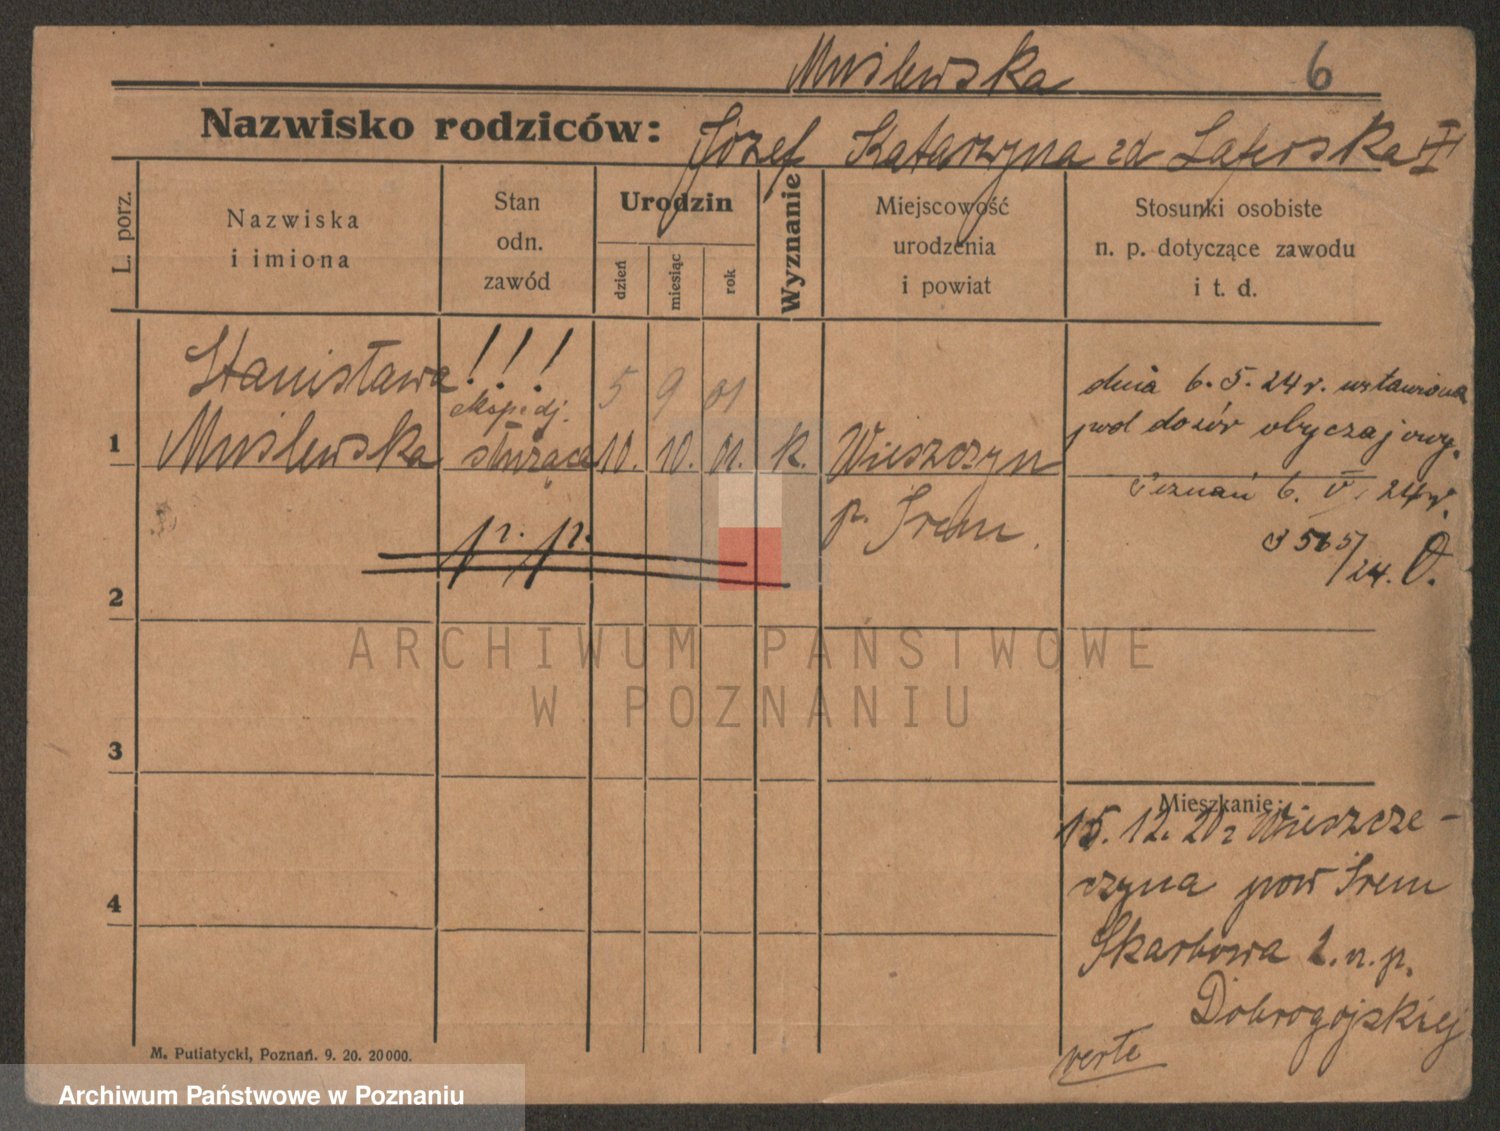 Muślewska 6
Nazwisko rodziców: Józef Katarzyna zd
L. porz.
Nazwiska
i imiona
Stan
odn.
zawód
Urodzin
dzień
miesiąc
rok
Wyznanie
Miejscowość
urodzenia
i powiat
Stosunki osobiste
n. p. dotyczące zawodu
i t. d.
Stanisława !!! 5 9 01
ekspedj.
1 Muślewska służąca 10. 10. 01. k. Wieszczyn
p. Śrem.
dnia 6.5.24r. ustawiona
pod dozór obyczajowy.
Poznań 6. V. 24r.
p. p.
2
3
4
Mieszkanie:
15.12.20r Wieszcze-
czyna pow Śrem
Skarbowa 2. n. p.
Dobrogojskiej
verte
M. Putiatycki, Poznań. 9. 20. 20000.
ARCHIWUM PAŃSTWOWE
W POZNANIU
Archiwum Państwowe w Poznaniu